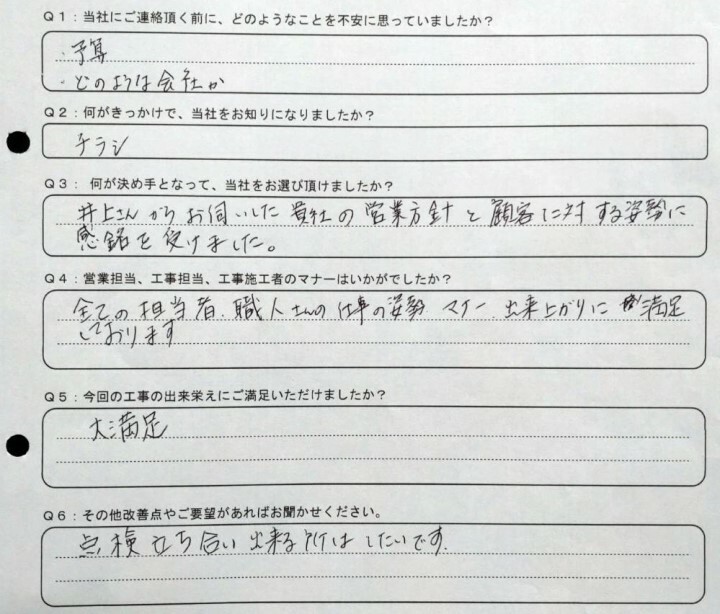 Q1：当社にご連絡頂く前に、どのようなことを不安に思っていましたか？
・予算
・どのような会社か
Q2：何がきっかけで、当社をお知りになりましたか？
チラシ
Q3： 何が決め手となって、当社をお選び頂けましたか？
井上さんからお伺いした貴社の営業方針と顧客に対する姿勢に
感銘を受けました。
Q4：営業担当、工事担当、工事施工者のマナーはいかがでしたか？
全ての担当者、職人さんの仕事の姿勢 マナー 出来上がりに 満足
しております
Q5：今回の工事の出来栄えにご満足いただけましたか？
大満足
Q6：その他改善点やご要望があればお聞かせください。
点検立ち合い出来る所はしたいです.